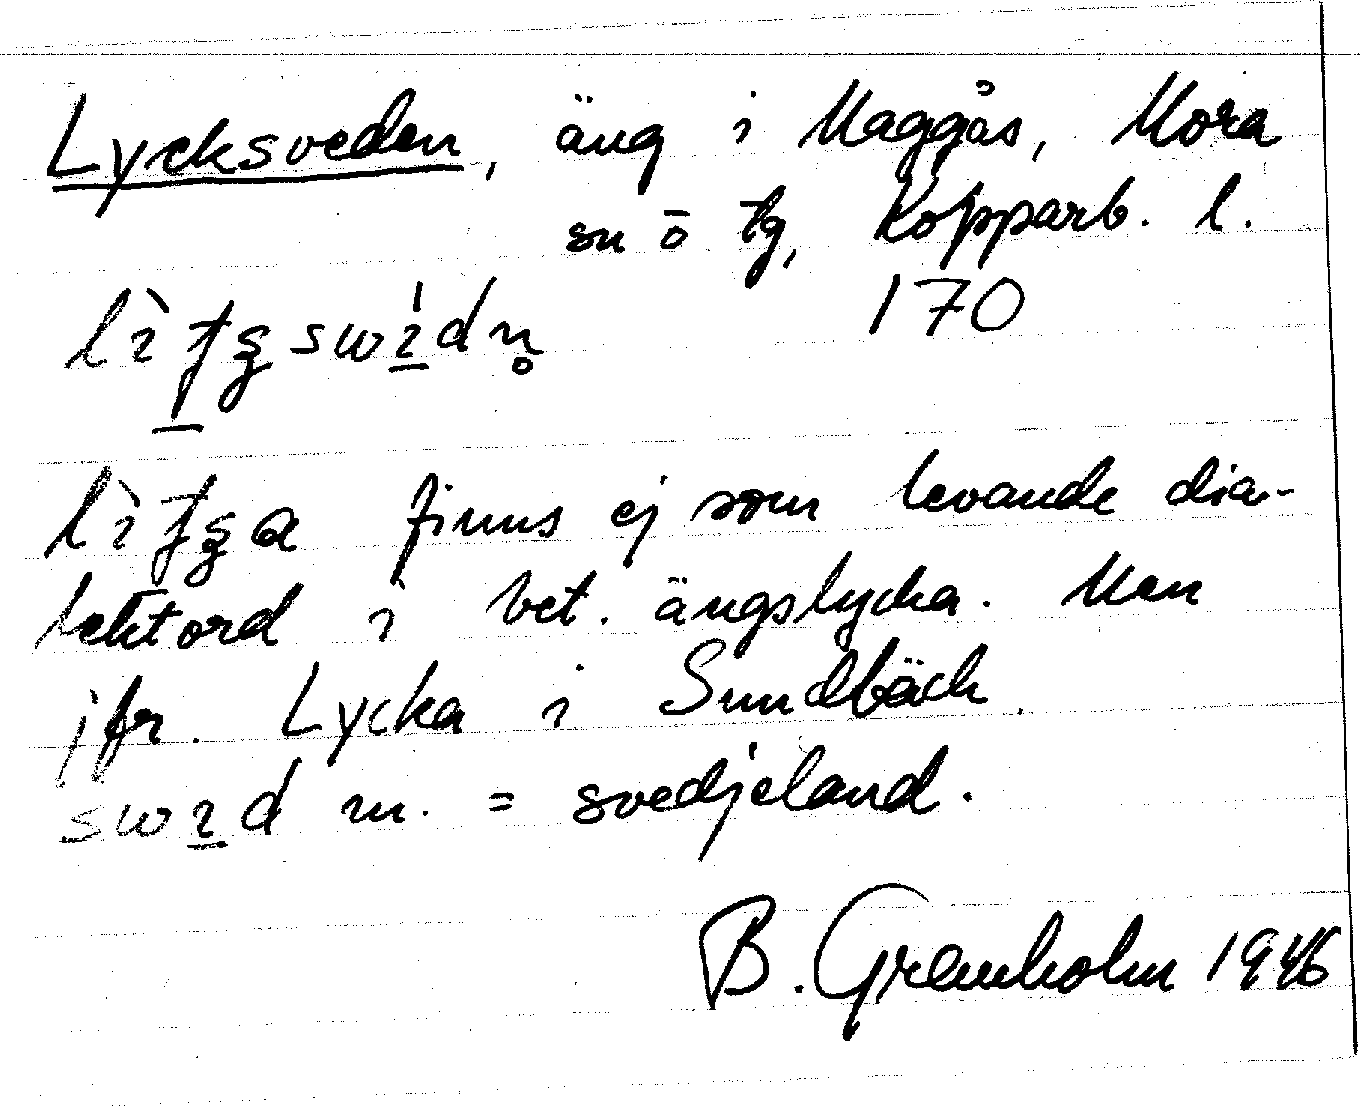 Lycksveden, äng i Maggås, Mora
sn o tg, Kopparb. l.
170
finns ej som levande dia-
lektord i bet. ängslycka. Men
jfr. Lycka i Sundbäck.
m. = svedjeland.
B. Granholm 1946